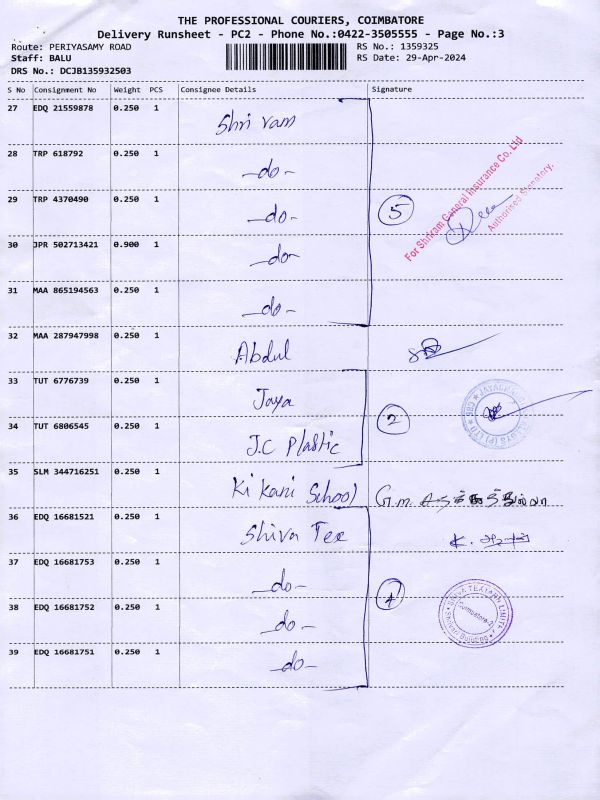 THE PROFESSIONAL COURIERS, COIMBATORE
Delivery Runsheet - PC2 - Phone No.:0422-3505555 - Page No.:3
Route: PERIYASAMY ROAD RS No.: 1359325
Staff: BALU RS Date: 29-Apr-2024
DRS No.: DCJB135932503
S No Consignment No Weight PCS Consignee Details Signature
27 EDQ 21559878 0.250 1 Shri ram
28 TRP 618792 0.250 1 -do-
29 TRP 4370490 0.250 1 -do- 5
For Shriram General Insurance Co. Ltd
Authorised Signatory.
30 JPR 502713421 0.900 1 -do-
31 MAA 865194563 0.250 1 -do-
32 MAA 287947998 0.250 1 Abdul
33 TUT 6776739 0.250 1 Jaya
34 TUT 6806545 0.250 1 J.C Plastic 2
35 SLM 344716251 0.250 1 Ki Kani School G.m.
36 EDQ 16681521 0.250 1 Shiva Tex K.
37 EDQ 16681753 0.250 1 -do- 4
38 EDQ 16681752 0.250 1 -do-
39 EDQ 16681751 0.250 1 -do-